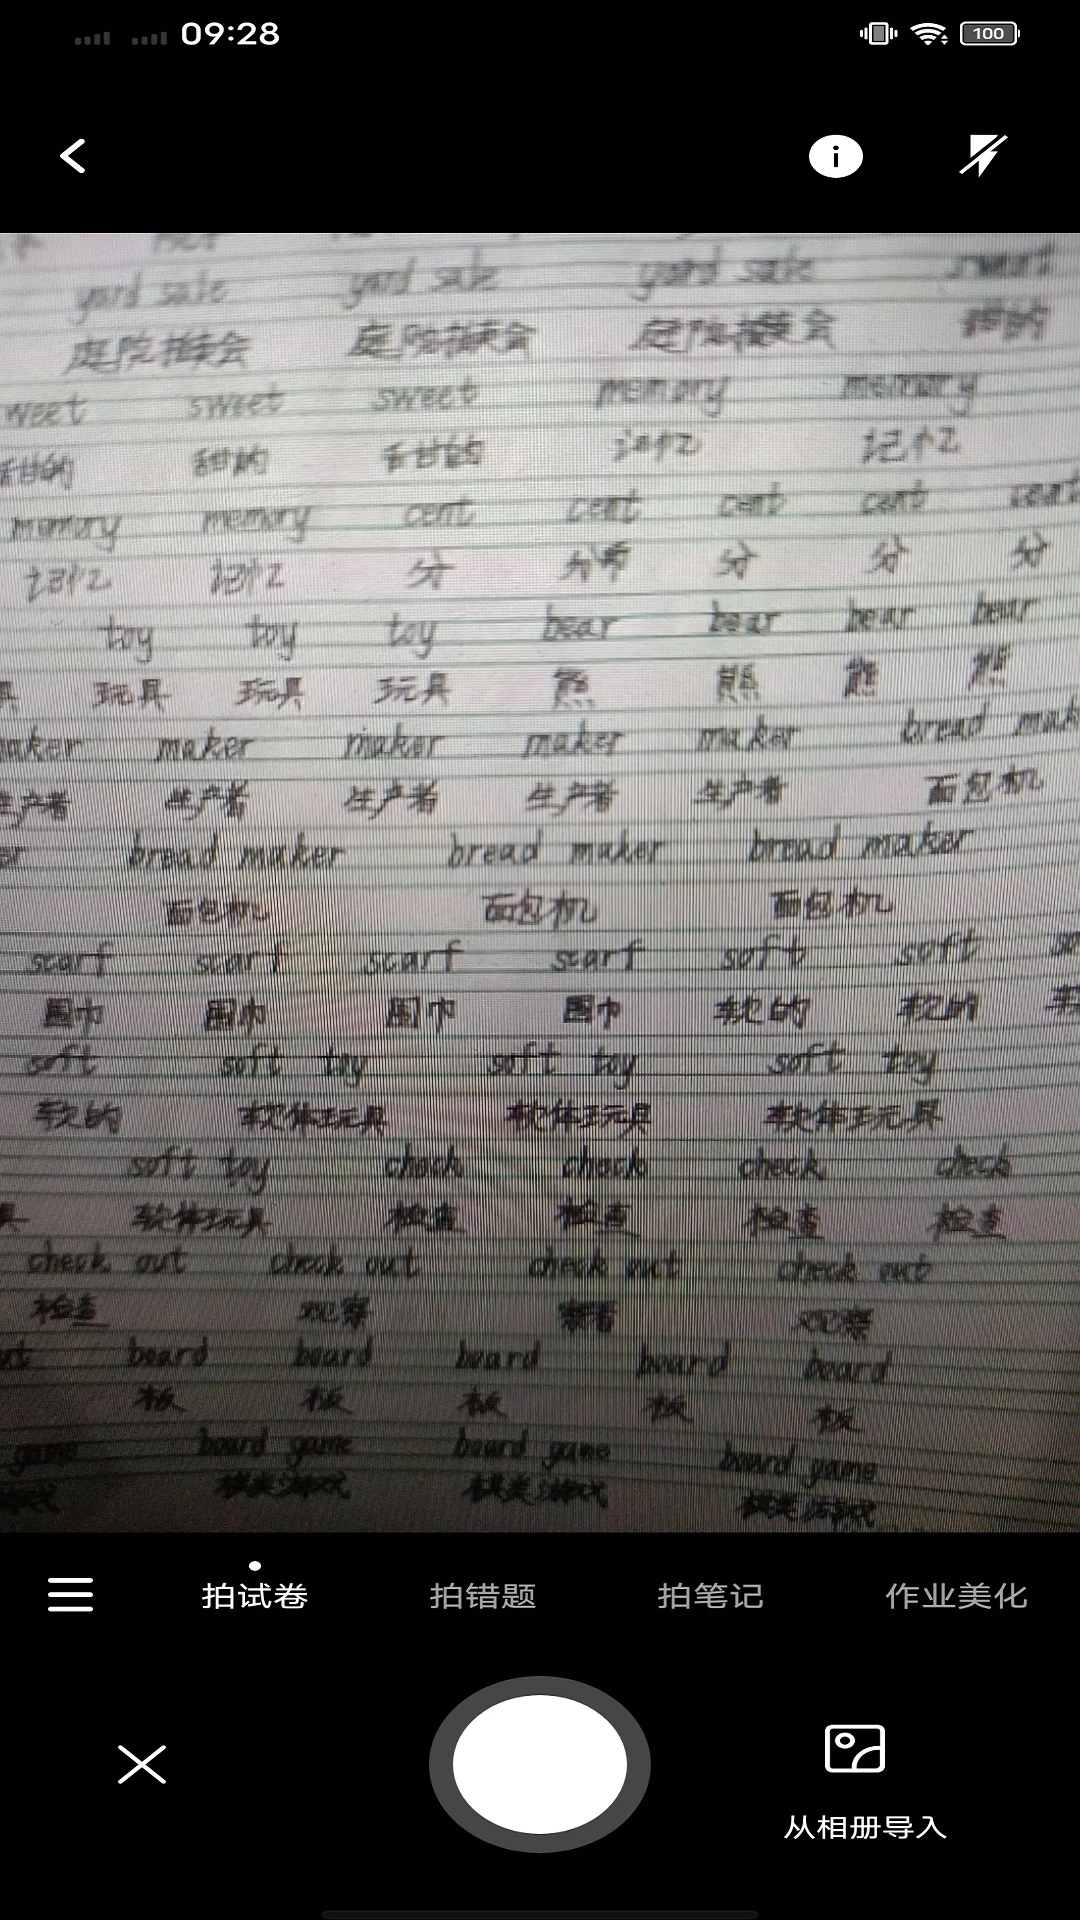 09:28
100
yard sale yard sale yard sale sweet
庭院 会 庭院 会 庭院 会 甜的
weet sweet sweet memory memory
甜的 甜的 甜的 记忆 记忆
memory memory cent cent cent cent cent
记忆 记忆 分 分 分 分
toy toy toy bear bear bear bear
具 玩具 玩具 玩具 熊 熊 熊 熊
maker maker maker maker maker bread mak
生产者 生产者 生产者 生产者 生产者 面包机
er bread maker bread maker bread maker
面包机 面包机 面包机
scarf scarf scarf scarf soft soft so
围巾 围巾 围巾 围巾 软的 软的 软
soft soft toy soft toy soft toy
软的 软体玩具 软体玩具 软体玩具
soft toy check check check check
具 软体玩具 检查 检查 检查 检查
check out check out check out check out
检查 观察 观察
board board board board board
板 板 板 板 板
game board game board game board game
游戏 棋类游戏 棋类游戏 棋类游戏
拍试卷 拍错题 拍笔记 作业美化
从相册导入